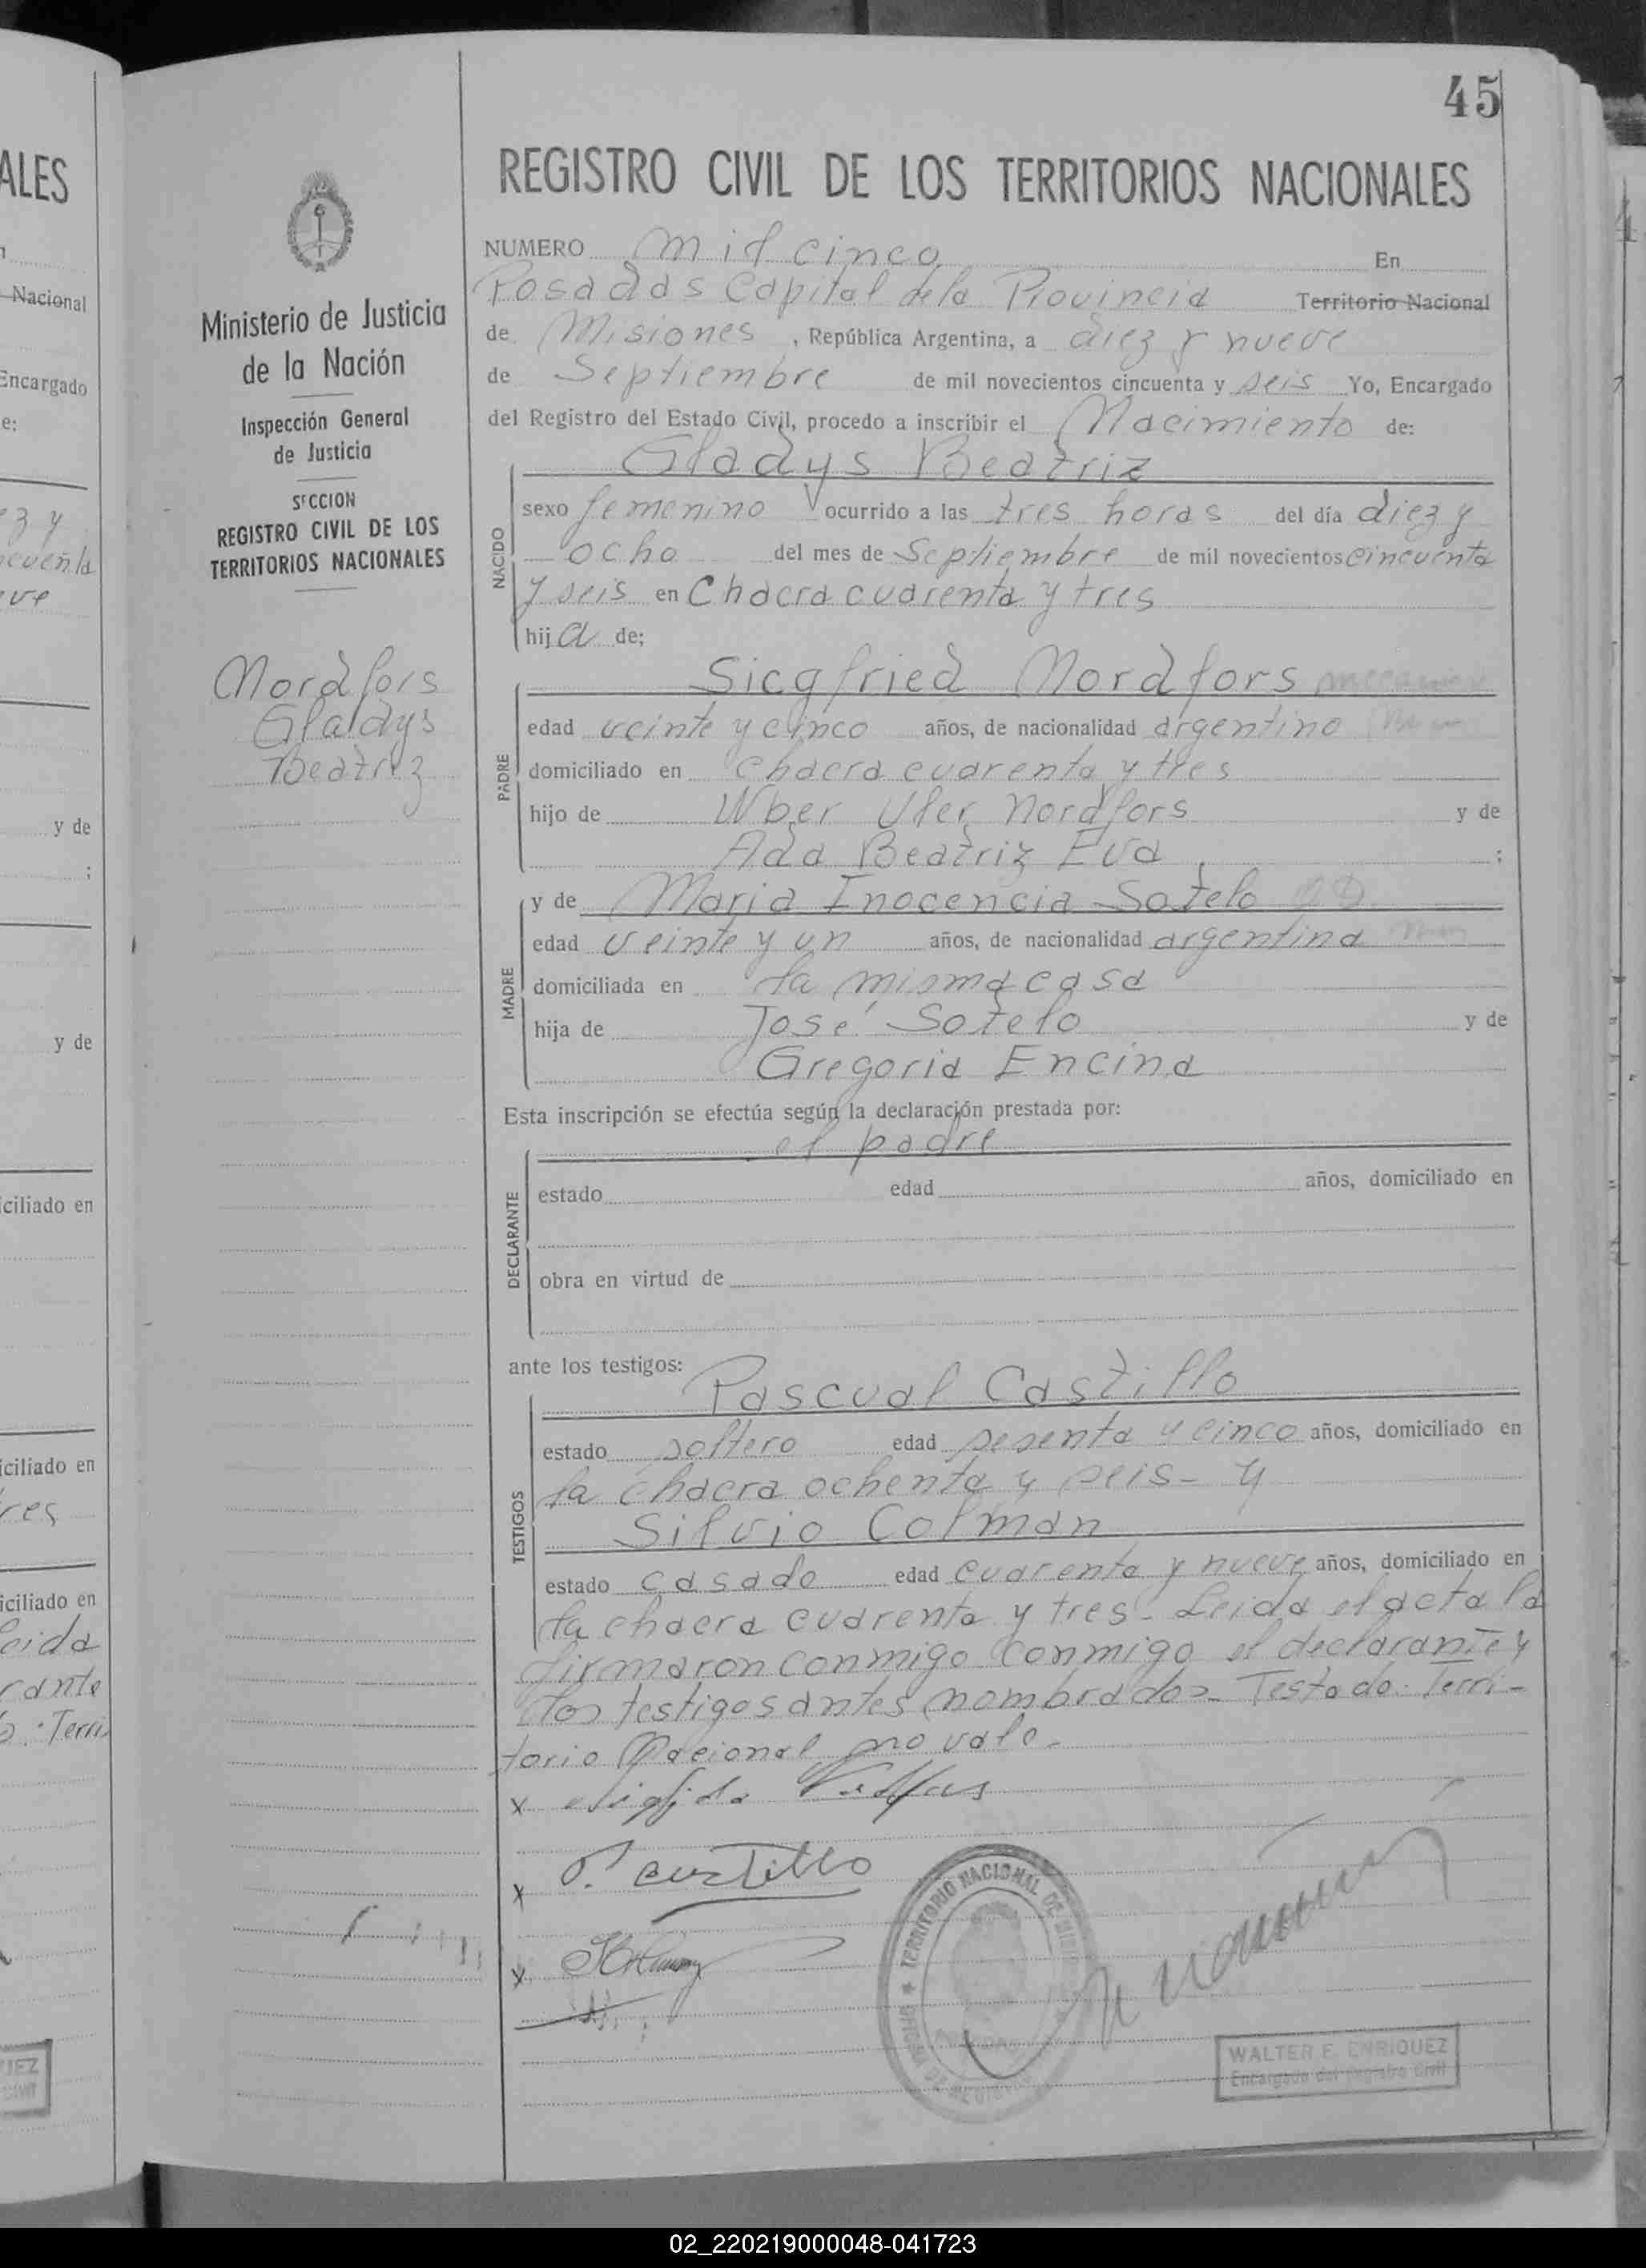 45
REGISTRO CIVIL DE LOS TERRITORIOS NACIONALES
NUMERO mil cinco En
Posadas Capital de la Provincia Territorio Nacional
de Misiones, República Argentina, a diez y nueve
de Septiembre de mil novecientos cincuenta y seis Yo, Encargado
del Registro del Estado Civil, procedo a inscribir el Nacimiento de:
Gladys Beatriz
NACIDO
sexo femenino ocurrido a las tres horas del día diez y
ocho del mes de Septiembre de mil novecientos cincuenta
y seis en Chacra cuarenta y tres
hija de;
Siegfried Nordfors
PADRE
edad veinte y cinco años, de nacionalidad argentino
domiciliado en chacra cuarenta y tres
hijo de Nordfors y de
Ada Beatriz Eva ;
y de Maria Inocencia Sotelo
MADRE
edad veinte y un años, de nacionalidad argentina
domiciliada en la misma casa
hija de José Sotelo y de
Gregoria Encina
Esta inscripción se efectúa según la declaración prestada por:
el padre
DECLARANTE
estado edad años, domiciliado en
obra en virtud de
ante los testigos:
Pascual Castillo
TESTIGOS
estado soltero edad sesenta y cinco años, domiciliado en
la chacra ochenta y seis - y
Silvio Colman
estado casado edad cuarenta y nueve años, domiciliado en
la chacra cuarenta y tres - Leida el acta la
firmaron conmigo conmigo el declarante y
los testigos antes nombrados - Testado: Terri-
torio Nacional no vale.
x
x P. Castillo
x
TERRITORIO NACIONAL DE
WALTER E. ENRIQUEZ
Encargado del Registro Civil
Ministerio de Justicia
de la Nación
Inspección General
de Justicia
SECCION
REGISTRO CIVIL DE LOS
TERRITORIOS NACIONALES
Nordfors
Gladys
Beatriz
ALES
Nacional
Encargado
e:
ez y
ncuenta
y de
;
y de
iciliado en
iciliado en
res
iciliado en
eida
rante
Terri
02_220219000048-041723